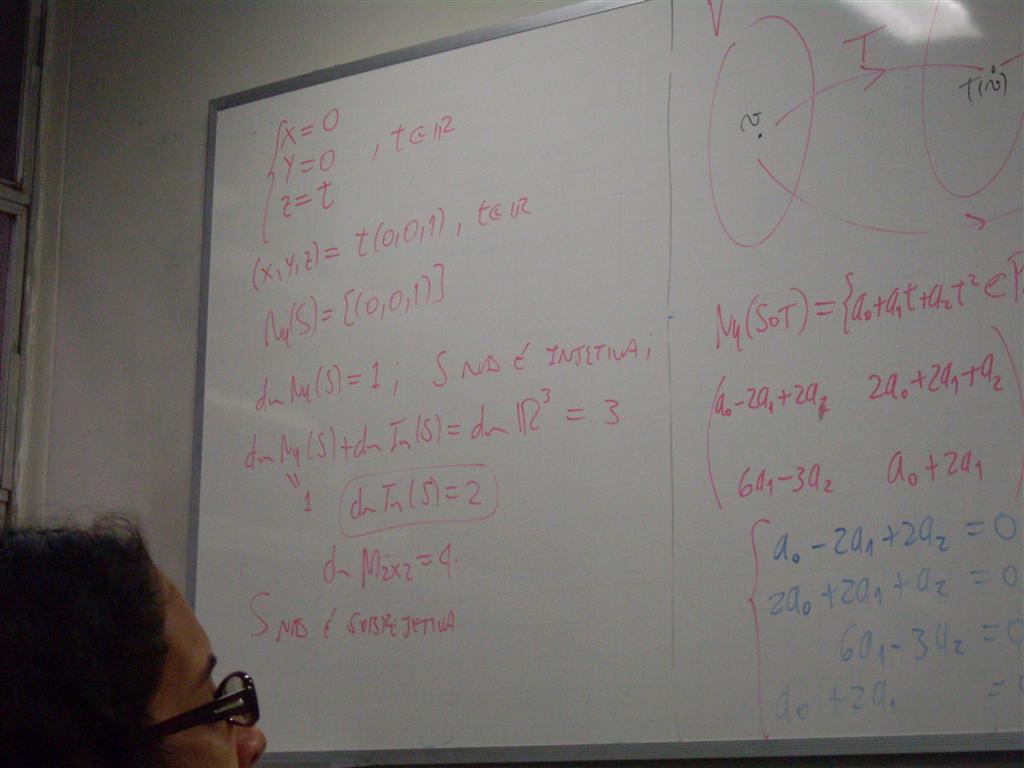 x = 0
y = 0 , t ∈ ℝ
z = t
(x, y, z) = t(0,0,1) , t ∈ ℝ
Nu(S) = [(0,0,1)]
dim Nu(S) = 1 ; S NÃO É INJETIVA ;
dim Nu(S) + dim Im(S) = dim ℝ³ = 3
"
1 dim Im(S) = 2
dim M₂ₓ₂ = 4.
S NÃO É SOBREJETIVA
V
T
v
T(v)
Nu(SoT) = {a₀+a₁t+a₂t² ∈ P
a₀-2a₁+2a₂ 2a₀+2a₁+a₂
6a₁-3a₂ a₀+2a₁
a₀ - 2a₁ + 2a₂ = 0
2a₀ + 2a₁ + a₂ = 0
6a₁ - 3a₂ = 0
a₀ + 2a₁ =